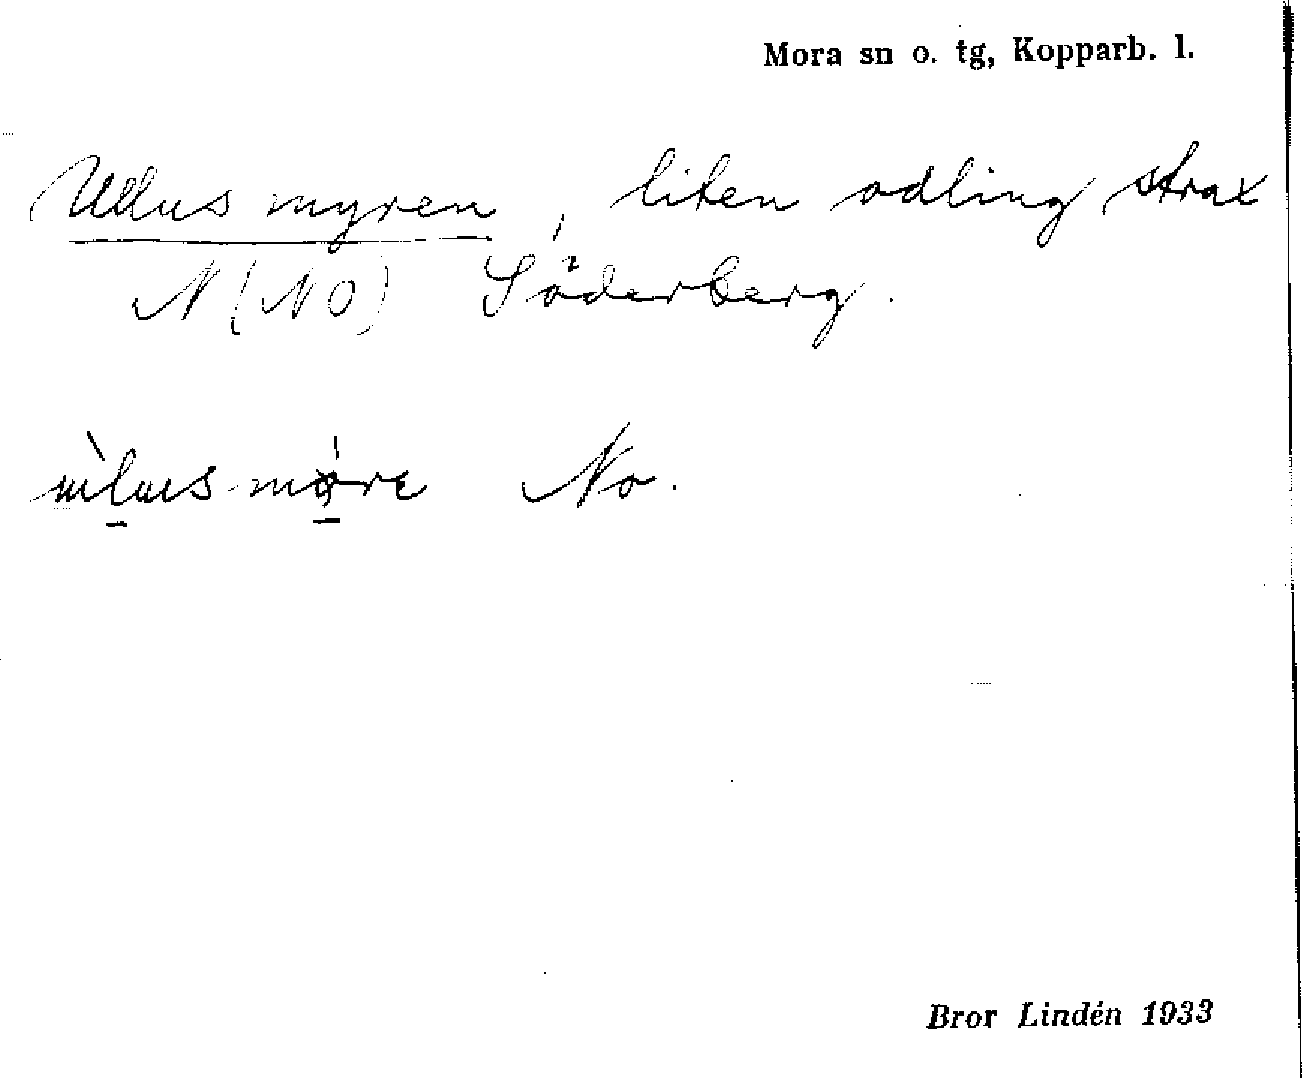 Mora sn o. tg, Kopparb. l.
Ullus myren, liten odling strax
N (NO) Söderberg.
No.
Bror Lindén 1933